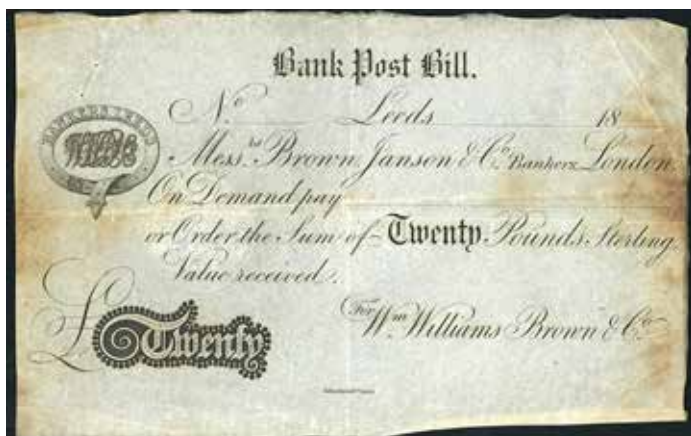 Bank Post Bill.
No Leeds 18
BANKERS LEEDS
Messrs Brown Janson & Co Bankers London
On Demand pay
or Order the Sum of Twenty Pounds Sterling
Value received.
£ Twenty
For Wm Williams Brown & Co